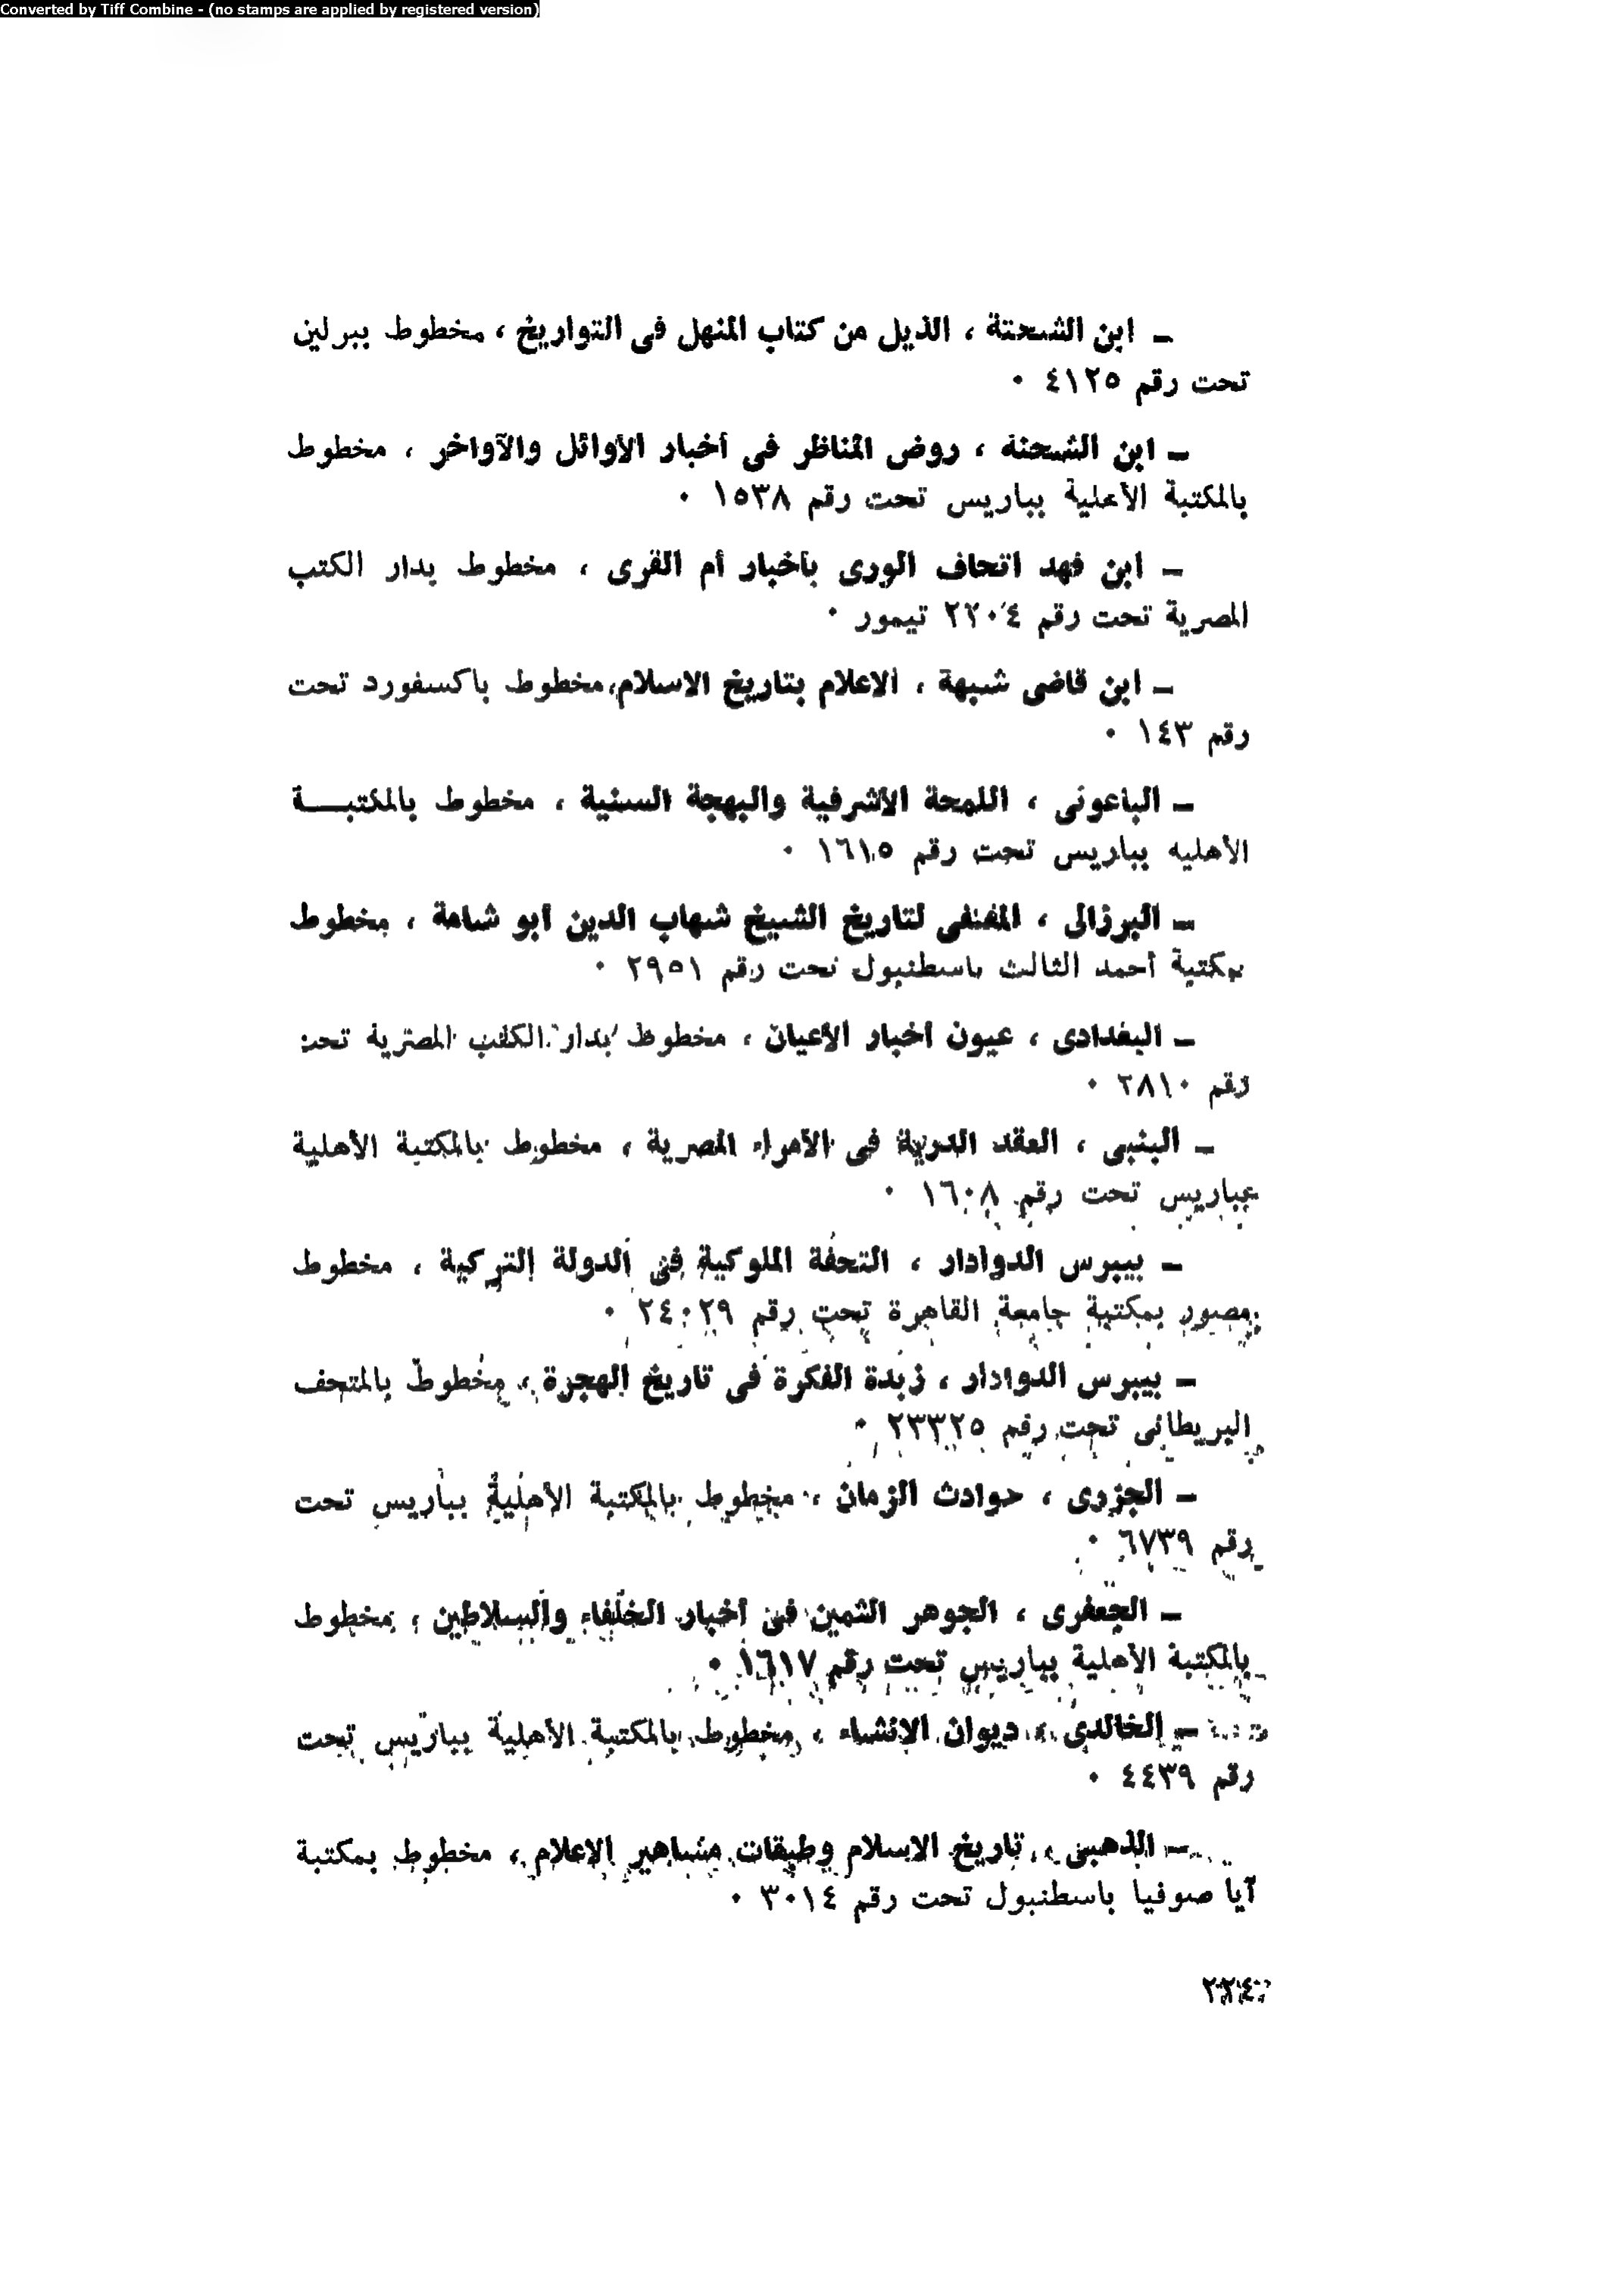 Converted by Tiff Combine - (no stamps are applied by registered version)
ـ ابن الشحتة ، الذيل من كتاب المنهل فى التواريخ ، مخطوط ببرلين
تحت رقم ٤١٢٥ ٠
ـ ابن الشحنة ، روض المناظر فى أخبار الأوائل والآواخر ، مخطوط
بالمكتبة الأعلية بباريس تحت رقم ١٥٣٨ ٠
ـ ابن فهد اتحاف الورى بأخبار أم القرى ، مخطوط بدار الكتب
المصرية تحت رقم ٢٢٠٤ تيمور ٠
ـ ابن قاضى شبهة ، الاعلام بتاريخ الاسلام، مخطوط باكسفورد تحت
رقم ١٤٣ ٠
ـ الباعونى ، اللمحة الأشرفية والبهجة السنية ، مخطوط بالمكتبـــة
الأهليه بباريس تحت رقم ١٦١٥ ٠
ـ البرزالى ، المقتفى لتاريخ الشيخ شهاب الدين أبو شامة ، مخطوط
بمكتبة أحمد الثالث باسطنبول تحت رقم ٢٩٥١ ٠
ـ البغدادى ، عيون أخبار الأعيان ، مخطوط بدار الكتب المصرية تحت
رقم ٢٨١٠ ٠
ـ البنبى ، العقد الدرية فى الأمراء المصرية ، مخطوط بالمكتبة الأهلية
بباريس تحت رقم ١٦٠٨ ٠
ـ بيبرس الدوادار ، التحفة الملوكية فى الدولة التركية ، مخطوط
مصور بمكتبة جامعة القاهرة تحت رقم ٢٤٠٢٩ ٠
ـ بيبرس الدوادار ، زبدة الفكرة فى تاريخ الهجرة ، مخطوط بالمتحف
البريطانى تحت رقم ٢٣٣٢٥ ٠
ـ الجزرى ، حوادث الزمان ، مخطوط بالمكتبة الأهلية بباريس تحت
رقم ٦٧٣٩ ٠
ـ الجعفرى ، الجوهر الثمين فى أخبار الخلفاء والسلاطين ، مخطوط
بالمكتبة الأهلية بباريس تحت رقم ١٦١٧ ٠
ـ الخالدى ، ديوان الانشاء ، مخطوط بالمكتبة الأهلية بباريس تحت
رقم ٤٤٣٩ ٠
ـ الذهبى ، تاريخ الاسلام وطبقات مشاهير الاعلام ، مخطوط بمكتبة
آيا صوفيا باسطنبول تحت رقم ٣٠١٤ ٠
٢٢٤